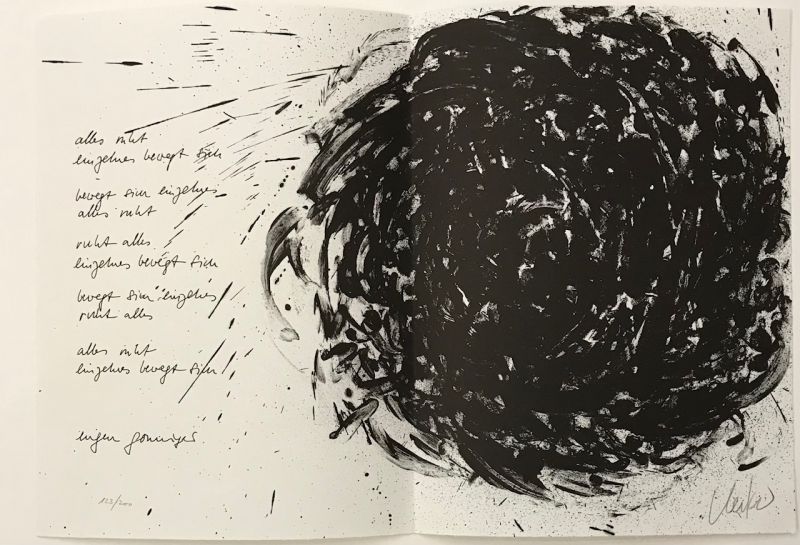 alles ruht
einzelnes bewegt sich
bewegt sich einzelnes
alles ruht
ruht alles
einzelnes bewegt sich
bewegt sich einzelnes
ruht alles
alles ruht
einzelnes bewegt sich
eugen gomringer
123/200
Uecker